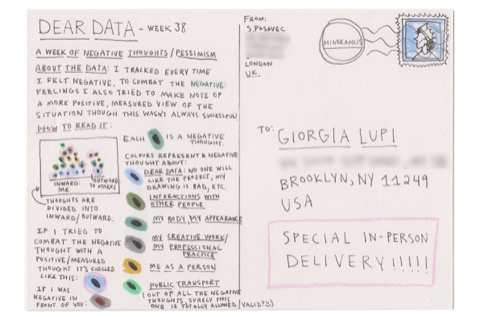 DEAR DATA - WEEK 38
A WEEK OF NEGATIVE THOUGHTS/PESSIMISM
ABOUT THE DATA: I TRACKED EVERY TIME
I FELT NEGATIVE, TO COMBAT THE NEGATIVE
FEELINGS I ALSO TRIED TO MAKE NOTE OF
A MORE POSITIVE, MEASURED VIEW OF THE
SITUATION THOUGH THIS WASN'T ALWAYS SUCCESSFUL!
HOW TO READ IT:
INWARD: ME
OUTWARD TO OTHERS
THOUGHTS ARE
DIVIDED INTO
INWARD/OUTWARD.
IF I TRIED TO
COMBAT THE NEGATIVE
THOUGHT WITH A
POSITIVE/MEASURED
THOUGHT IT'S CIRCLED
LIKE THIS:
IF I WAS
NEGATIVE IN
FRONT OF YOU:
EACH IS A NEGATIVE
THOUGHT.
COLOURS REPRESENT A NEGATIVE
THOUGHT ABOUT:
DEAR DATA: NO ONE WILL
LIKE THE PROJECT, MY
DRAWING IS BAD, ETC.
INTERACTIONS WITH
OTHER PEOPLE
MY BODY, MY APPEARANCE
MY CREATIVE WORK/
MY PROFESSIONAL
PRACTICE
ME AS A PERSON
PUBLIC TRANSPORT
(OUT OF ALL THE NEGATIVE
THOUGHTS, SURELY THIS
ONE IS TOTALLY ALLOWED/VALID?)
FROM:
S.POSAVEC
LONDON
U.K.
MINNEAPOLIS
TO: GIORGIA LUPI
BROOKLYN, NY 11249
USA
SPECIAL IN-PERSON
DELIVERY !!!!!